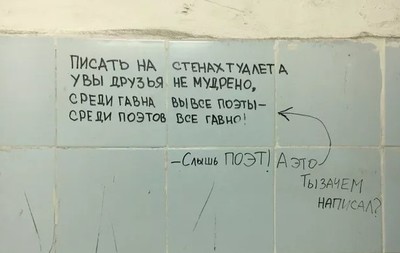 ПИСАТЬ НА СТЕНАХ ТУАЛЕТА
УВЫ ДРУЗЬЯ НЕ МУДРЕНО,
СРЕДИ ГАВНА ВЫ ВСЕ ПОЭТЫ—
СРЕДИ ПОЭТОВ ВСЕ ГАВНО!
—Слышь ПОЭТ! А ЭТО
ТЫ ЗАЧЕМ
НАПИСАЛ?